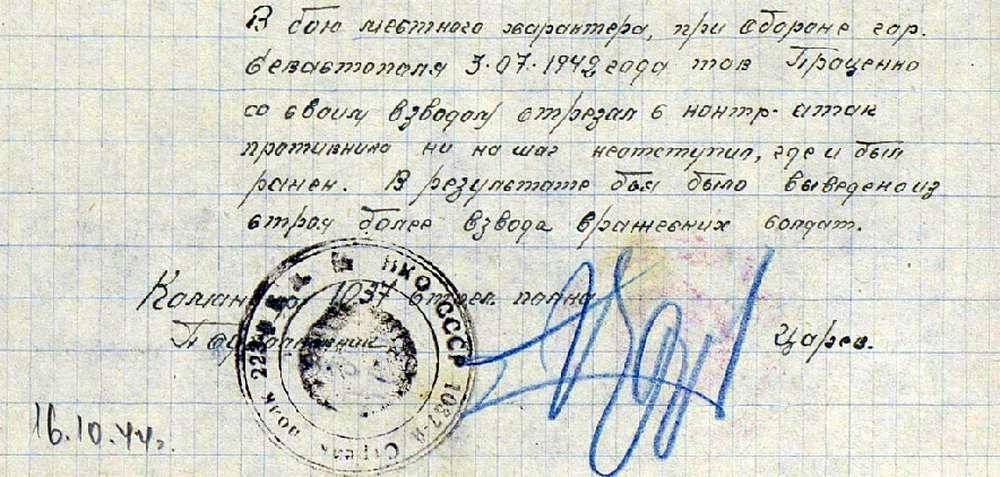 В бою местного характера, при обороне гор.
Севастополя 3.07.1942 года тов Праценко
со своим взводом отрезал 6 контр-атак
противника ни на шаг неотступил, где и был
ранен. В результате боя было выведено из
строя более взвода вражеских солдат.
Командир 1037 стрел. полка
Подполковник Царев.
НКО СССР 1037-й Стрелк полк 223
16.10.44г.